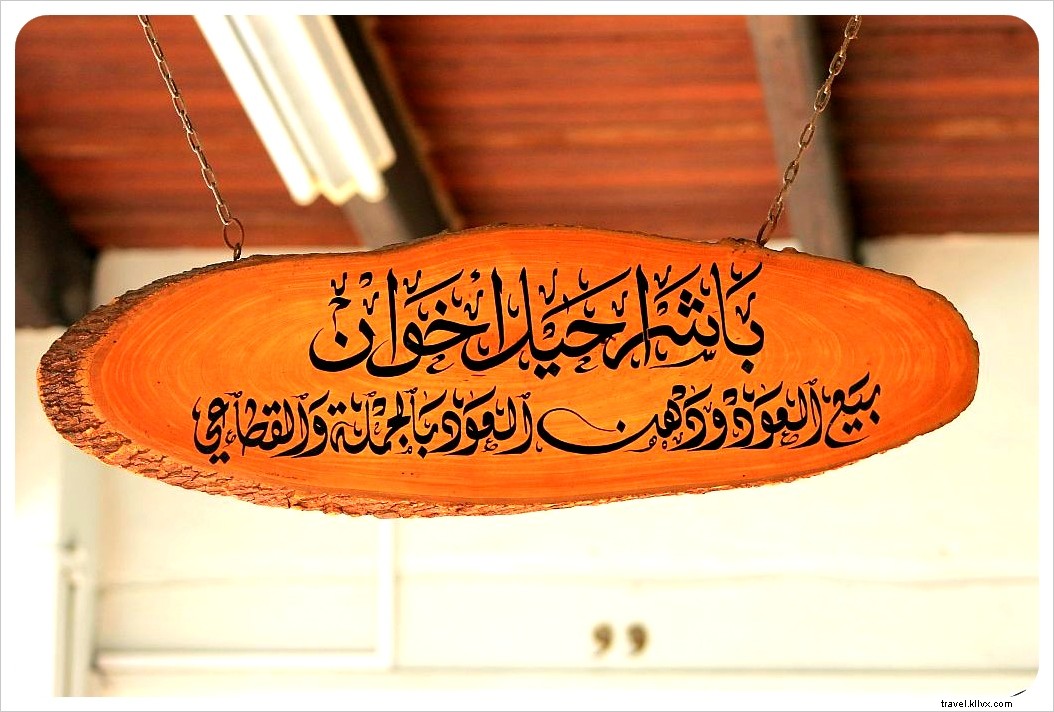 باشراحيل اخوان
بيع العود ودهن العود بالجملة والقطاعي
99
travel.kllvx.com